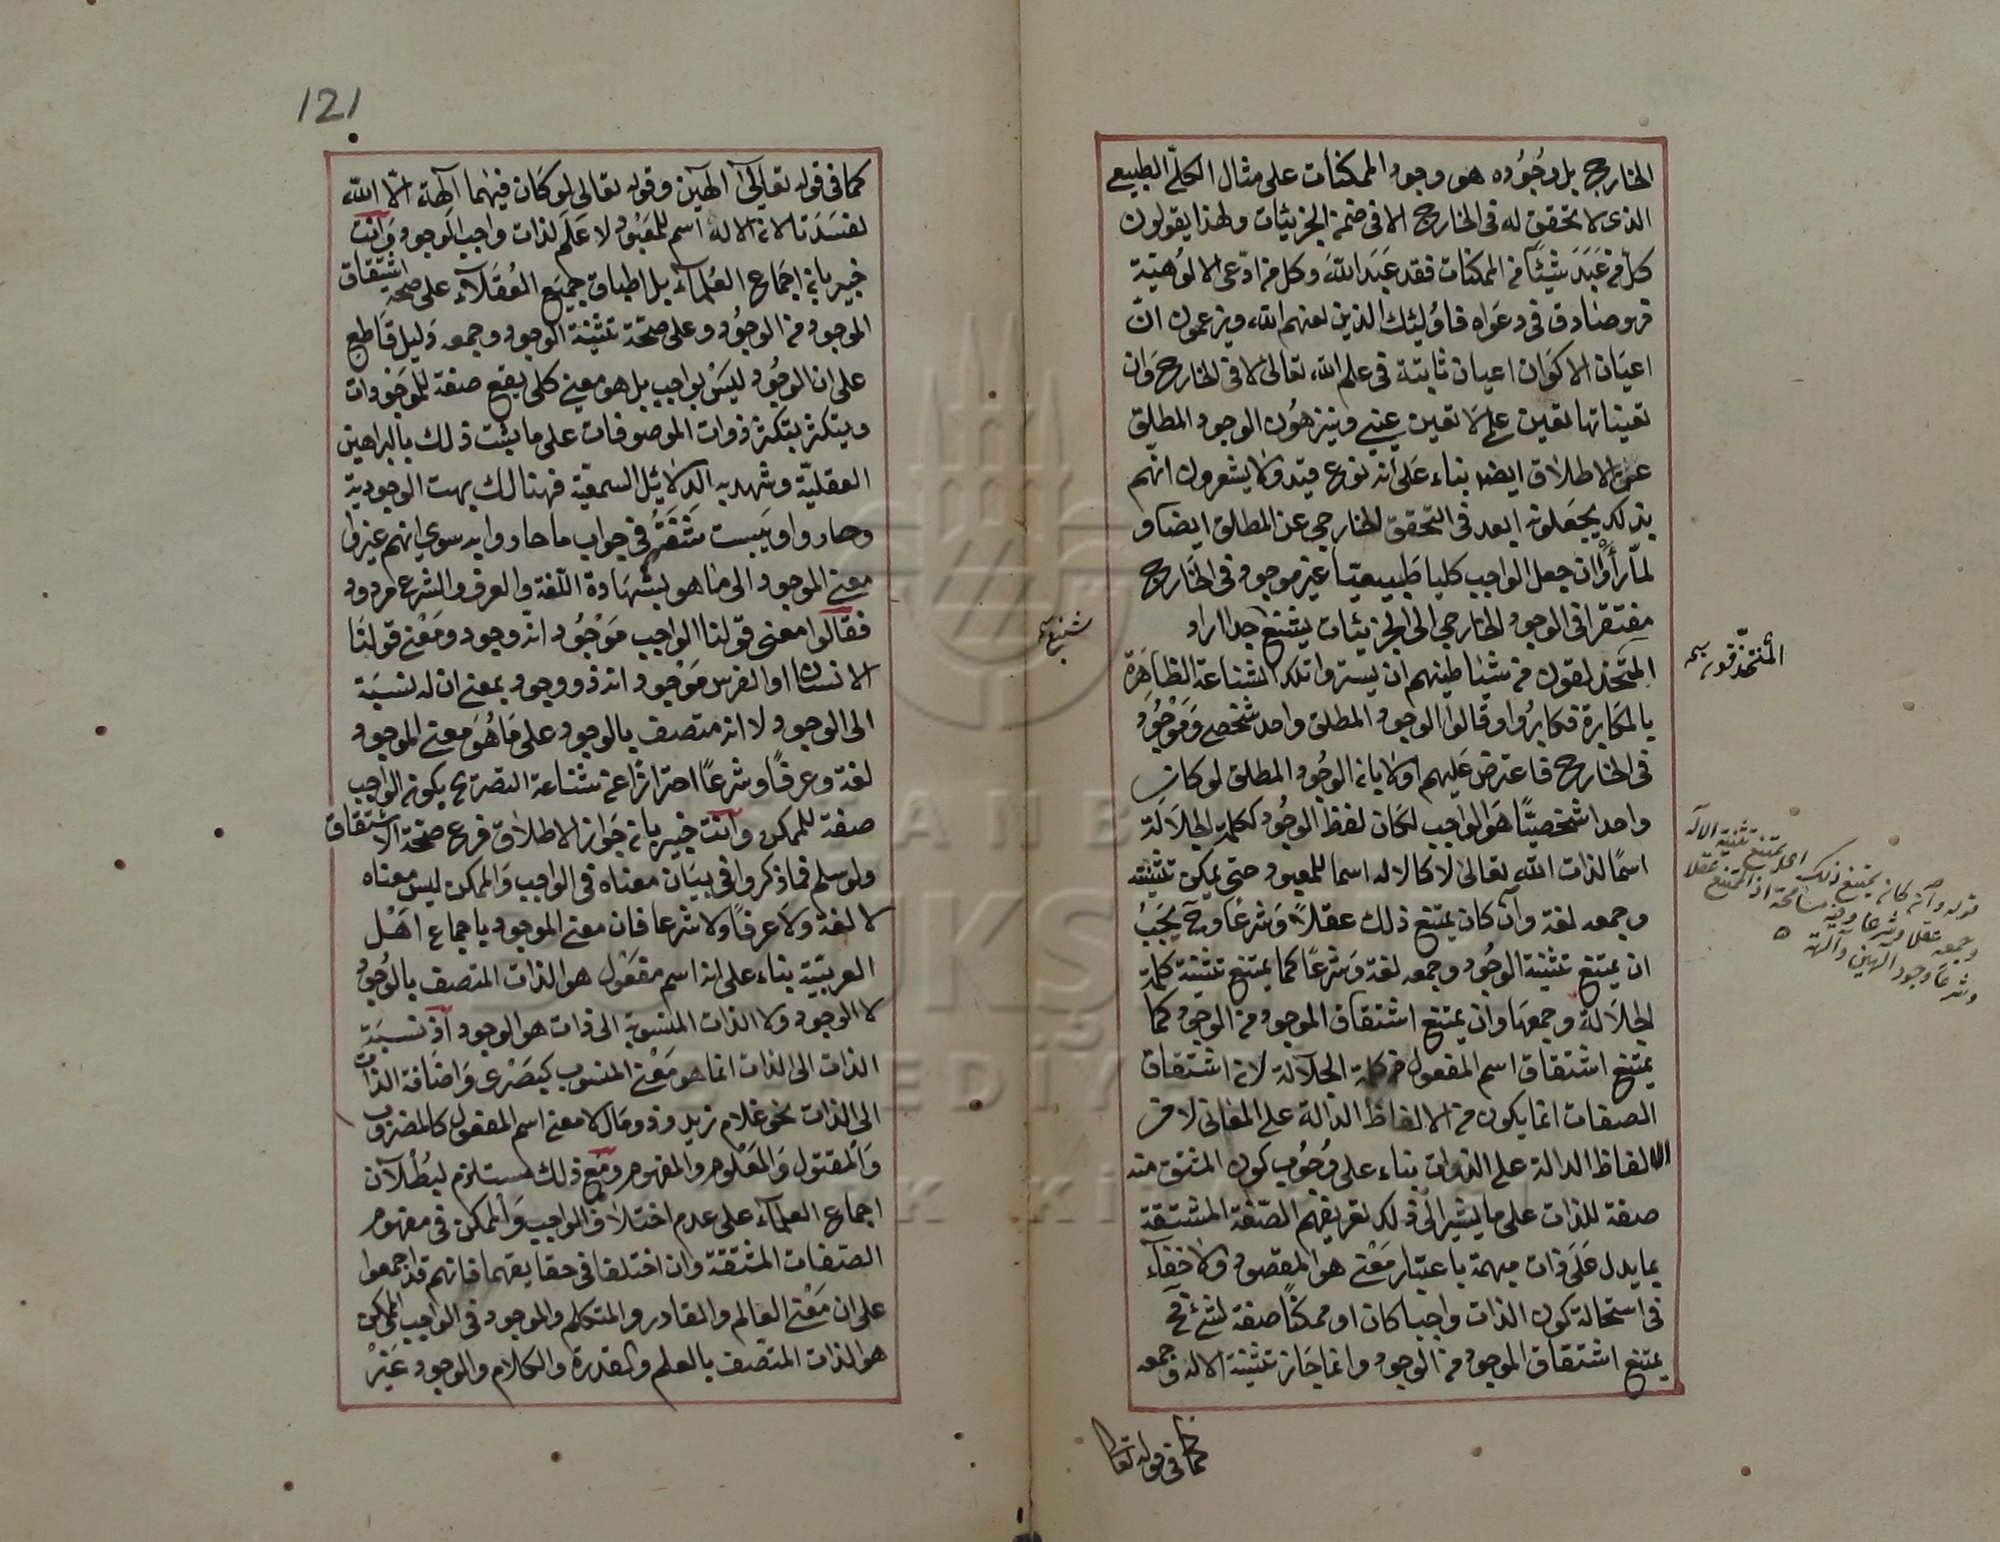 الخارج بل وجوده هو وجود الممكنات على مثال الكلّي الطبيعي
الذى لا تحقق له فى الخارج الا فى ضمن الجزئيات ولهذا يقولون
كل من عَبَدَ شيئًا من الممكنات فقد عَبَدَ اللهَ وكل من ادّعى الالوُهيّة
فهو صَادق فى دعواه فاوُلئك الذين لعنهم الله ويزعمون انّ
اعيَان الاكوَان اعيان ثابتة فى علم الله تعالى لا فى الخارج وَان
تعيناتها تعين علمي لا تعين عيني وينزهُون الوجود المطلق
عن الاطلاق ايضا بناء عَلى أنه نوع قيد ولا يشعرون انهم
بذلك يجعلونه ابعد فى التحقق الخارجي عن المطلق ايضا و
لمّا رأوْا ان جعل الواجب كليا طَبيعيّا غير موجود فى الخارج
مفتقرا فى الوجود الخارجي الى الجزئيات يشنع جدا اراد
المتحذلقون من شيَاطينهم ان يستروا تلك الشناعة الظاهرَة
بالمكابرة فكابرُوا وقَالوا الوجود المطلق واحد شخصي وَمَوْجُود
فى الخارج فاعترض عَليهم اولا بان الوجُود المطلق لوكان
واحدا شخصيًّا هَو الواجب لكَان لفظ الوجُود ككلمة الجلاَلَة
اسمًا لذات الله تعالى لا كالاله اسما للمعبود حتى يمكن تثنيته
وجمعه لغة وآن كان يمتنع ذلك عقلاً وَشرعًا وح يَجَبُ
ان يمتنع تثنية الوجُود وجمعه لغة وَشرعًا كما يمتنع تثنية كلمة
الجلاَلة وجمعهَا وان يمتنع اشتقاق الموجود من الوجود كما
يمتنع اشتقاق اسم المفعول من كلمة الجلآلة لان اشتقاق
الصفات انما يكون من الالفاظ الدالة على المعَانى لا من
الالفاظ الدالة على الذوات بناء على وجُوب كون المشتق منه
صفة للذات على ما يشير الى ذلك تعريفهم الصّفة المشتقة
بما يدل عَلَى ذات مبهمة باعتبار مَعْنى هو المقصود ولا خفآء
فى استحالة كون الذات واجبا كان او ممكنًا صفة لشئ فح
يمتنع اشتقاق الموجود من الوجود وانما جَاز تثنية الاله وجمعه
كما فى قوله تعا
شنع
المتحذلقون
قوله وان كان يمتنع ذلك اى يمتنع تثنية الاله
وجمعه عقلا وشرعا وفيه مسامحة اذ الممتنع عقلا
وشرعا وجود آلهين وآلهة
121
كما فى قوله تعَالىَ آلهين وقوله تعالى لو كَان فيهما آلهة الّا اللّٰه
لفسَدَتا لان الاله اسم للمَعْبُود لا عَلَم لذات واجب الوجود وَآنت
خبير بان اجمَاع العُلمآء بل اطباق جميَع العُقَلآء على صحة اشتقاق
الموجود من الوجُود وعلى صحّة تثنية الوجود وجمعه دَليل قَاطع
على ان الوجُود ليسَ بواجب بل هو معنى كلى يقع صفة للموَجُودات
ويتكثر بتكثر ذوات الموصوفات على ما يثبت ذلك بالبراهين
العقليّة وشهد به الدلائل السمعية فهنالك بهت الوجودية
وحاروا ويَبست شَفَتهُم فى جواب ما حاروا به سوي انهم غيروا
معنى الموجود الى مَا هو بشهَادة اللغة والعرف والشرع مردود
فقَالوا معنى قولنا الواجب مَوْجُود انه وجود ومَعْنى قولنَا
الانسان او الفرس مَوجُود انه ذو وجود بمعنى ان له نسبَة
الى الوجود لا انه متصف بالوجود على مَا هُوَ معنى الموجود
لغة وعرفًا وشرعًا احترازًا عن شناعة التصريح بكون الواجب
صفة للممكن وآنت خبير بان جَواز الاطلاق فرع صحّة الاشتقاق
ولو سلم فما ذكروا فى بيَان معناه فى الواجب وَالممكن ليس معناه
لا لغة ولا عرفًا ولا شرعا فان معنى الموجود باجماع اهْل
العربيّة بناء على انه اسم مفعُول هو الذات المتصف بالوجُود
لا الوجود ولا الذات المنسوبة الى ذات هو الوجود آذ نسبَة
الذات الى الذات انما هو مَعْنى المنسوب كبَصْرى وَاضافة الذات
الى الذات نحو غلام زيد وذو مَال لا معنى اسم المفعول كالمضروب
وَالمقتول وَالمعْلوم والمفهوم ومَع ذلك مستلزم لبُطْلآن
اجماع العلمآء على عدم اختلاف الواجب وَالممكن فى مفهوم
الصّفات المشتقة وان اختلفا فى حقايقهما فانهم قد اجمعوا
على ان مَعْنى العالم والقادر والمتكلم والموجود فى الواجب والممكن
هو الذات المتصف بالعلم والقدرة والكلام والوجود غَيْرَ